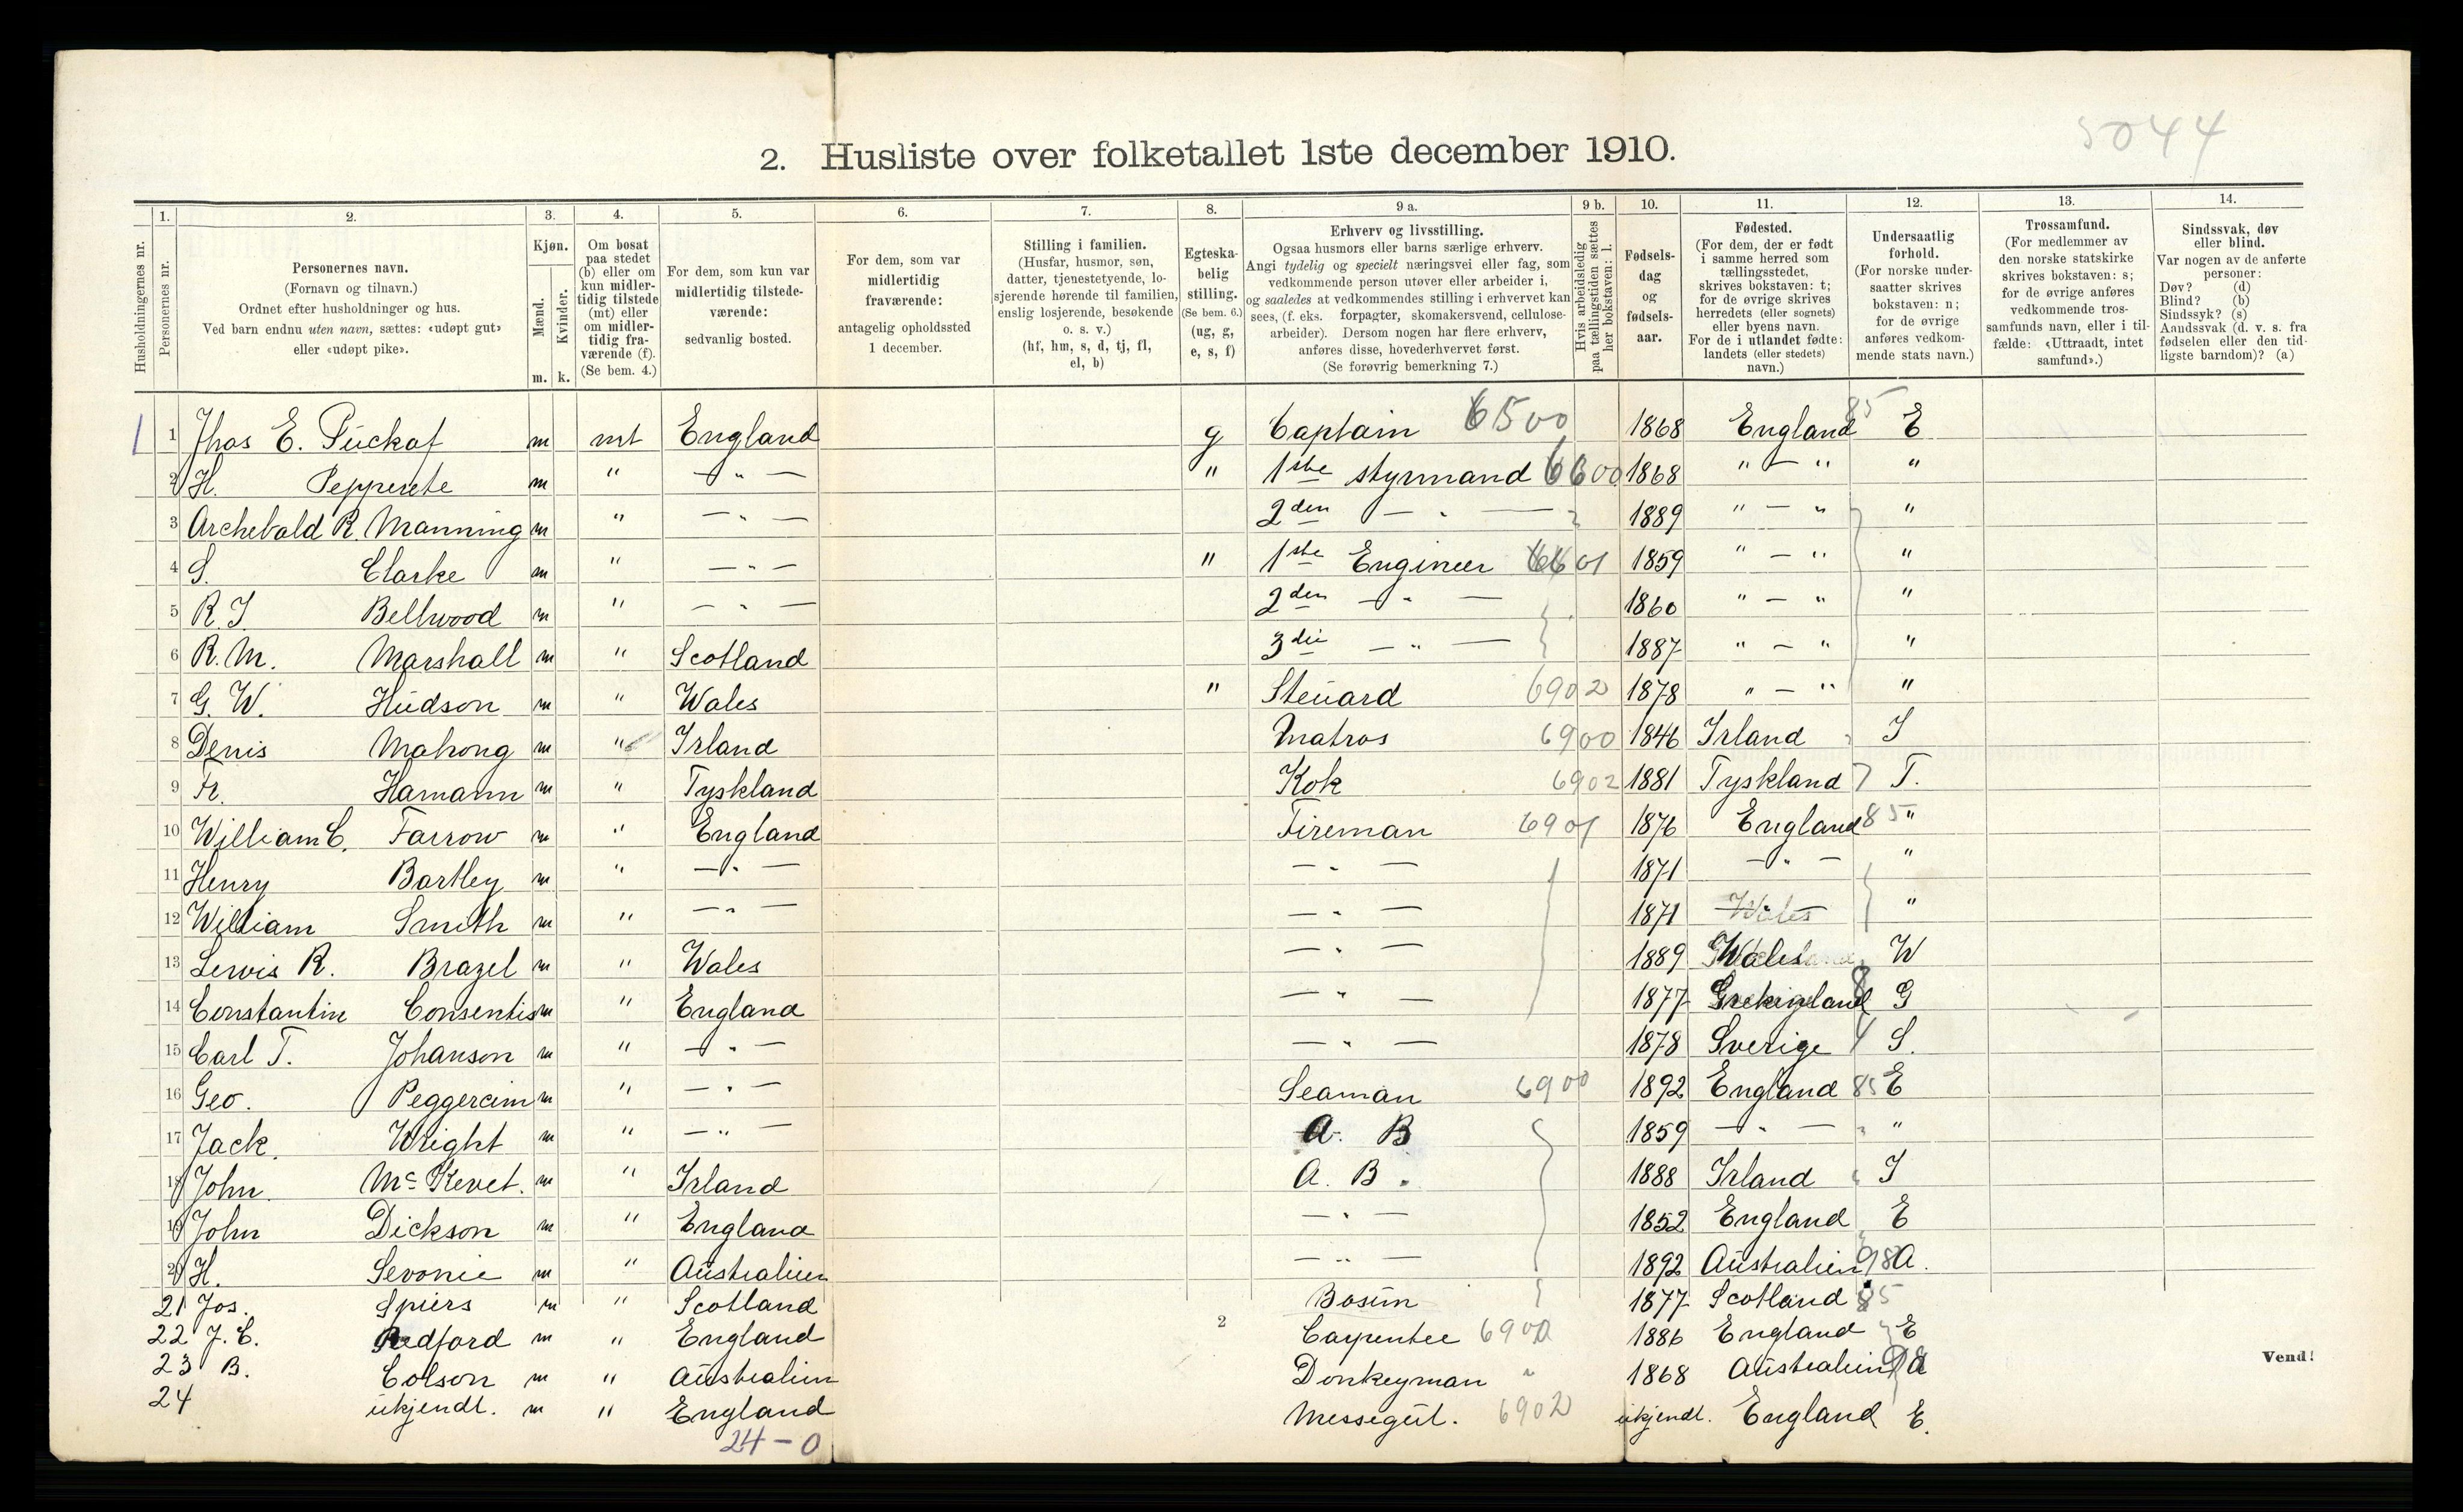 5044
2. Husliste over folketallet 1ste december 1910.
Husholdningernes nr.
1. Personernes nr.
2. Personernes navn. (Fornavn og tilnavn.) Ordnet efter husholdninger og hus. Ved barn endnu uten navn, sættes: «udøpt gut» eller «udøpt pike».
3. Kjøn. Mænd. m. Kvinder. k.
4. Om bosat paa stedet (b) eller om kun midlertidig tilstede (mt) eller om midlertidig fraværende (f). (Se bem. 4.)
5. For dem, som kun var midlertidig tilstedeværende: sedvanlig bosted.
6. For dem, som var midlertidig fraværende: antagelig opholdssted 1 december.
7. Stilling i familien. (Husfar, husmor, søn, datter, tjenestetyende, losjerende hørende til familien, enslig losjerende, besøkende o. s. v.) (hf, hm, s, d, tj, fl, el, b)
8. Egteskabelig stilling. (Se bem. 6.) (ug, g, e, s, f)
9 a. Erhverv og livsstilling. Ogsaa husmors eller barns særlige erhverv. Angi tydelig og specielt næringsvei eller fag, som vedkommende person utøver eller arbeider i, og saaledes at vedkommendes stilling i erhvervet kan sees, (f. eks. forpagter, skomakersvend, cellulosearbeider). Dersom nogen har flere erhverv, anføres disse, hovederhvervet først. (Se forøvrig bemerkning 7.)
9 b. Hvis arbeidsledig paa tællingstiden sættes her bokstaven: l.
10. Fødselsdag og fødselsaar.
11. Fødested. (For dem, der er født i samme herred som tællingsstedet, skrives bokstaven: t; for de øvrige skrives herredets (eller sognets) eller byens navn. For de i utlandet fødte: landets (eller stedets) navn.)
12. Undersaatlig forhold. (For norske undersaatter skrives bokstaven: n; for de øvrige anføres vedkommende stats navn.)
13. Trossamfund. (For medlemmer av den norske statskirke skrives bokstaven: s; for de øvrige anføres vedkommende trossamfunds navn, eller i tilfælde: «Uttraadt, intet samfund».)
14. Sindssvak, døv eller blind. Var nogen av de anførte personer: Døv? (d) Blind? (b) Sindssyk? (s) Aandssvak (d. v. s. fra fødselen eller den tidligste barndom)? (a)
1 1 Thos E. Puckaf m mt England g Captain 6500 1868 England 85 E
2 H. m " — " — " 1ste styrmand 6600 1868 " — " "
3 Archebald R. Manning m " — " — 2den — " — 1889 " — " "
4 S. Clarke m " — " — " 1ste Engineer 6601 1859 " — " "
5 R. J. Bellwood m " — " — 2den — " — 1860 " — " "
6 R. M. Marshall m " Scotland 3die — " — 1887 " — " "
7 G. W. Hudson m " Wales " Steuard 6902 1878 " — " "
8 Denis Mahong m " Irland Matros 6900 1846 Irland I
9 Fr. Hamann m " Tyskland Kok 6902 1881 Tyskland 7 T.
10 William C. Farrow m " England Fireman 6901 1876 England 85 "
11 Henry Bartley m " — " — — " — 1871 — " — "
12 William Smith m " — " — — " — 1871 — " — "
13 Lewis R. Brazel m " Wales — " — 1889 Wales W
14 Constantin Consentis m " England — " — 1877 Grekenland G
15 Carl T. Johanson m " — " — — " — 1878 Sverige 4 S.
16 Geo. Peggercim m " — " — Seaman 6900 1892 England 85 E
17 Jack. Wright m " — " — A. B 1859 — " — "
18 John. Mc Kevet. m " Irland A. B. 1888 Irland I
19 John Dickson m " England — " — 1852 England E
20 H. Sevonie m " Australien — " — 1892 Australien 98 A.
21 Jos. Spiers m " Scotland Bosun 1877 Scotland 85
22 J. C. Redford m " England Carpenter 1886 England E
23 B. Colson m " Australien Donkeyman " 1868 Australien 98 A
24 ukjendt. m " England Messegut. 6902 ukjendt. England E.
24 – 0
2
Vend!